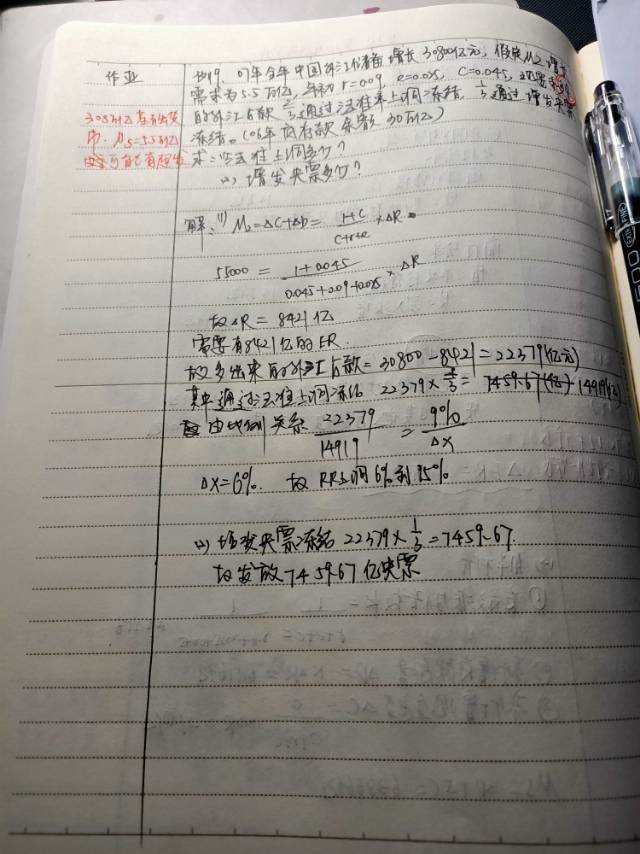 作业
07年全年中国外汇储备增长30800亿元, 假定M2增
需求为5.5万亿, 年初 r=0.09 e=0.025, C=0.045, 现需
的外汇占款 2/3通过法准上调冻结, 1/3通过增发央票
冻结。(06年底存款余额30万亿)
求: (1)法准上调多少?
(2)增发央票多少?
解: (1) M2=ΔC+ΔD= 1+C/C+r+e ×ΔR
55000 = 1+0.045/0.045+0.09+0.025 × ΔR
故ΔR = 8421亿
需要有8421亿的ER.
故多出来的外汇占款=30800-8421=22379(亿元)
其中通过法准上调冻结 22379×2/3= 14919(亿)
由比例关系 22379/14919 = 9%/Δx
Δx=6%. 故RR上调6%到15%
(2)增发央票冻结 22379×1/3=7459.67.
故发放7459.67亿央票